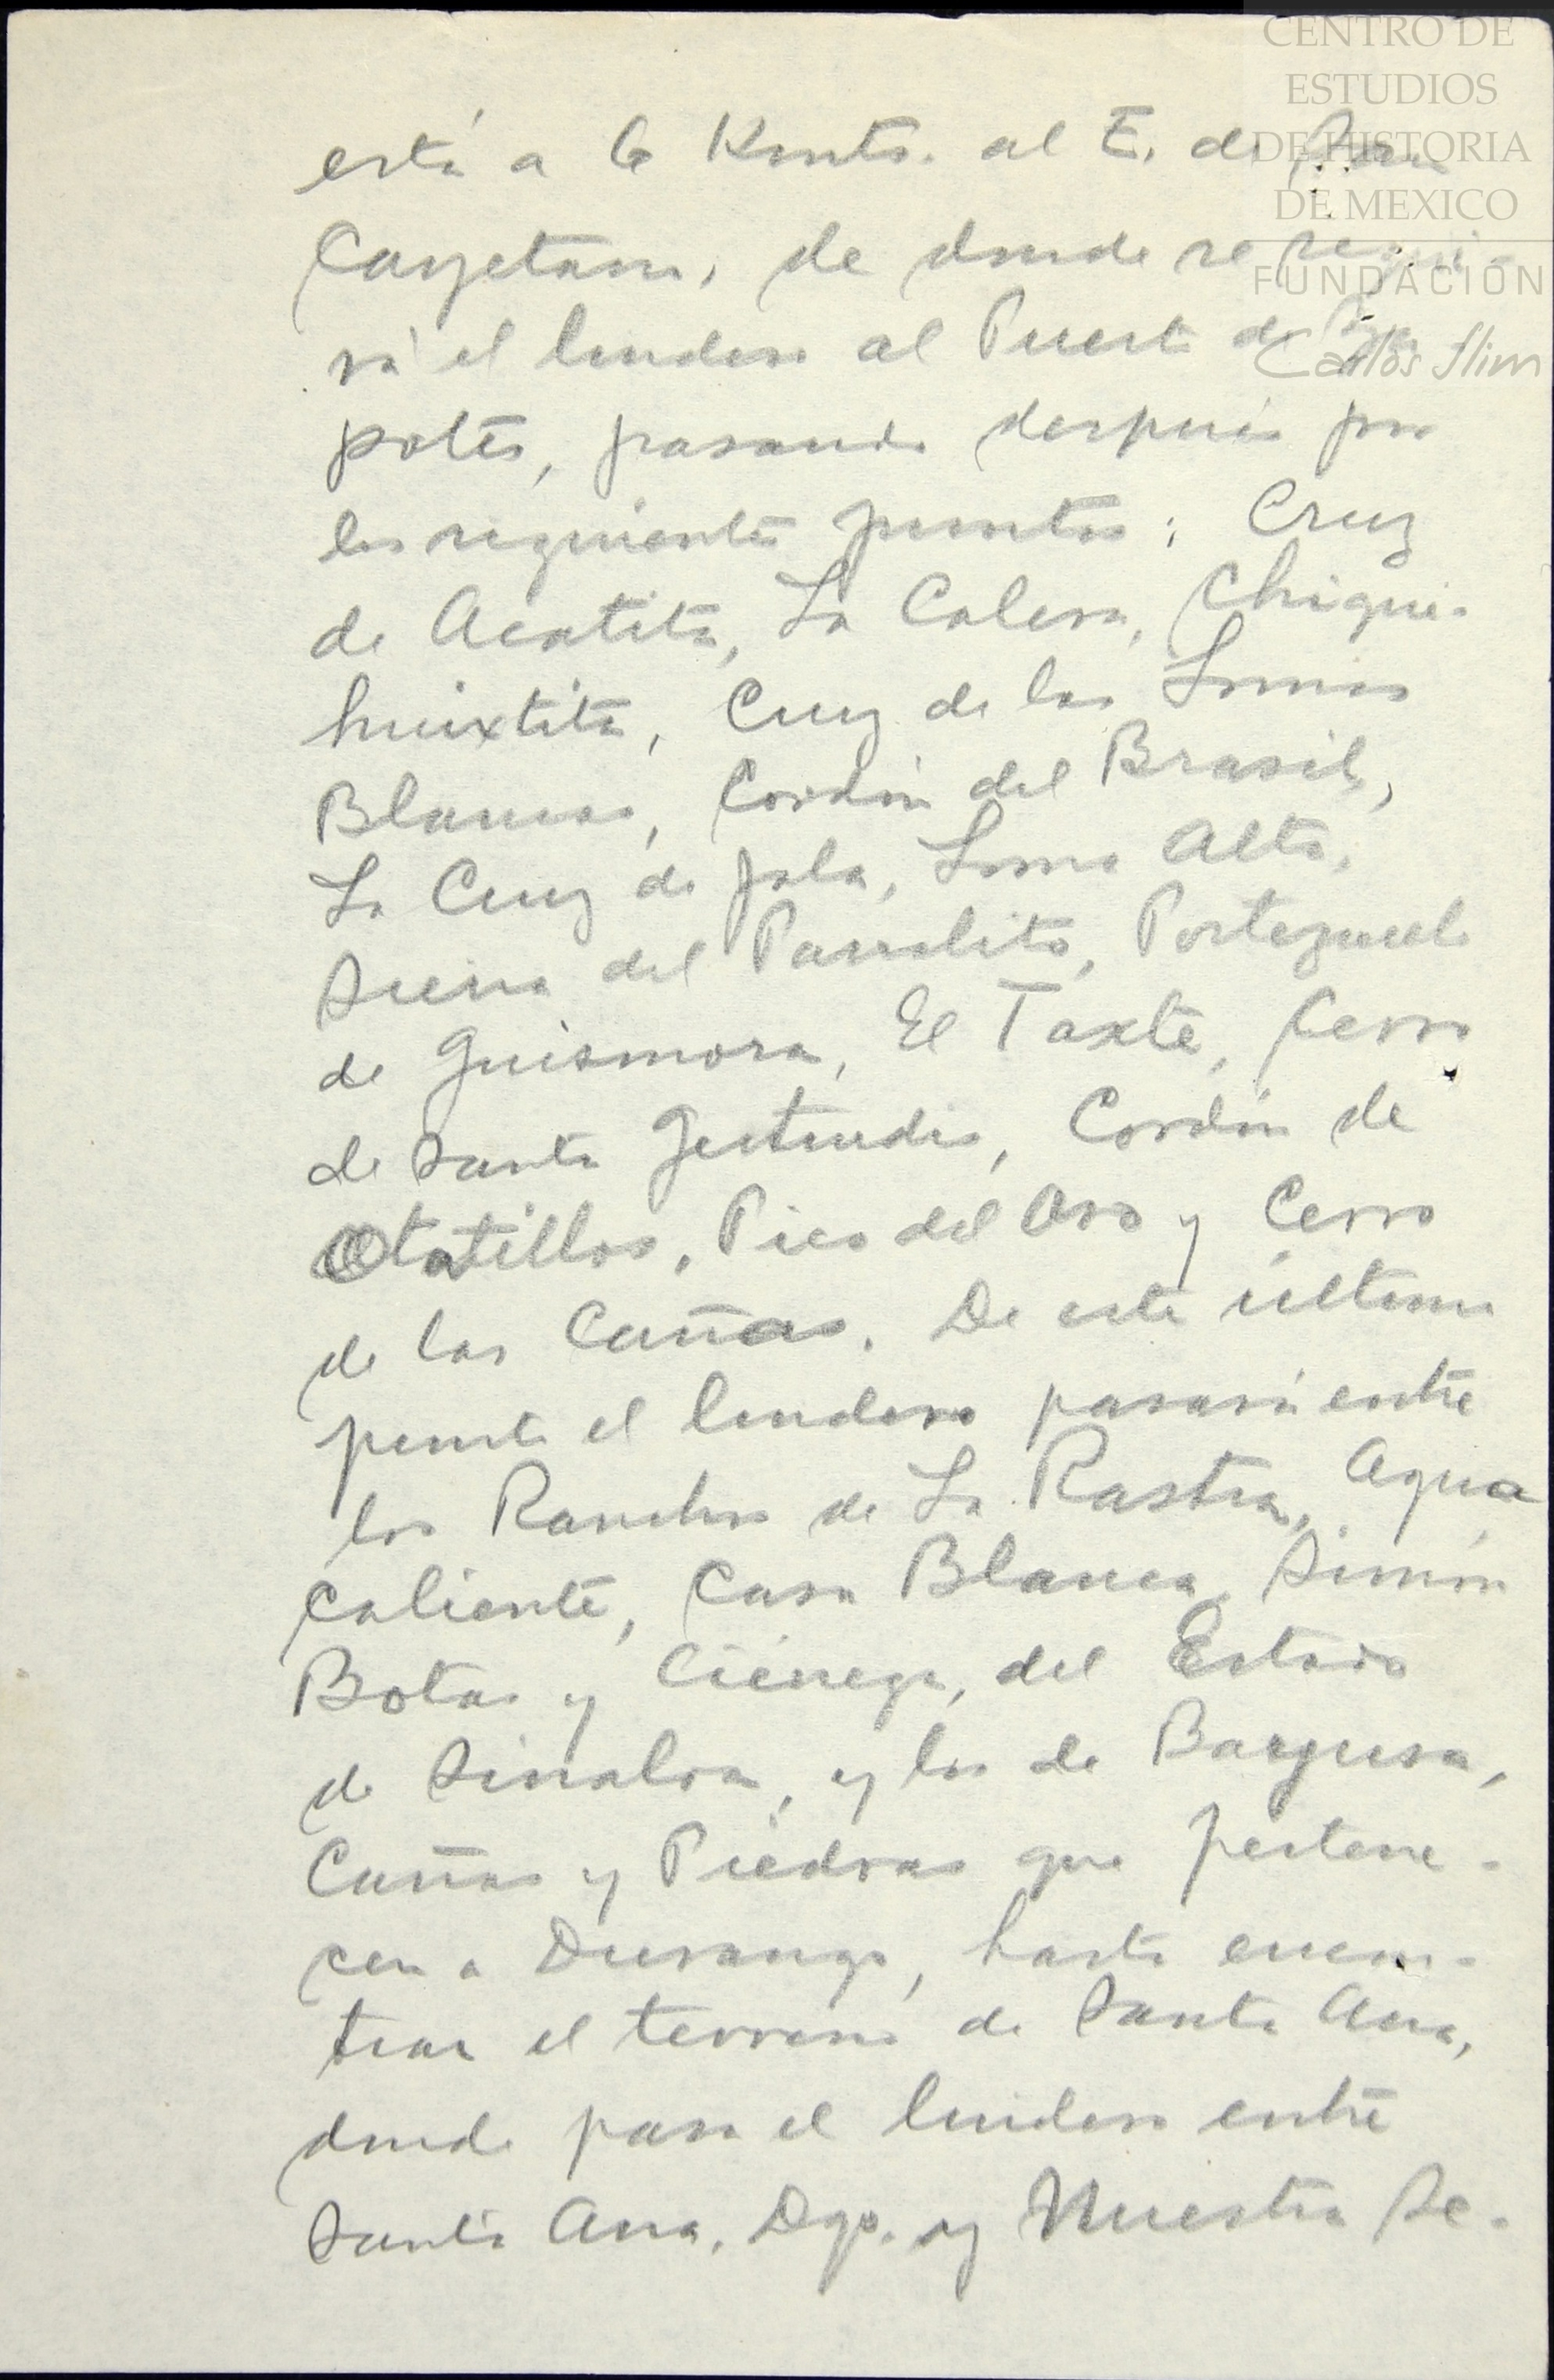 CENTRO DE
ESTUDIOS
DE HISTORIA
DE MEXICO
FUNDACIÓN
Carlos Slim
está a 6 Kmts. al E. de San
Cayetano, de donde se segui-
rá el lindero al Puerto de
potes, pasando después por
los siguientes puntos: Cruz
de Acatita, La Calera, Chiqui-
huixtita, Cruz de las Lomas
Blancas, Cordón del Brasil,
La Cruz de Jala, Loma Alta,
Sierra del Parralito, Portezuelo
de Guismora, El Taxte, Cerro
de Santa Gertrudis, Cordón de
Otatillos, Pico del Oso y Cerro
de las Cañas. De este último
punto el lindero pasará entre
los Ranchos de La Rastra, Agua
Caliente, Casa Blanca, Simón
Botas y Ciénega, del Estado
de Sinaloa, y los de
Cañas y Piedras que pertene-
cen a Durango, hasta encon-
trar el terreno de Santa Ana,
donde pasa el lindero entre
Santa Ana, Dgo. y Nuestra Se-